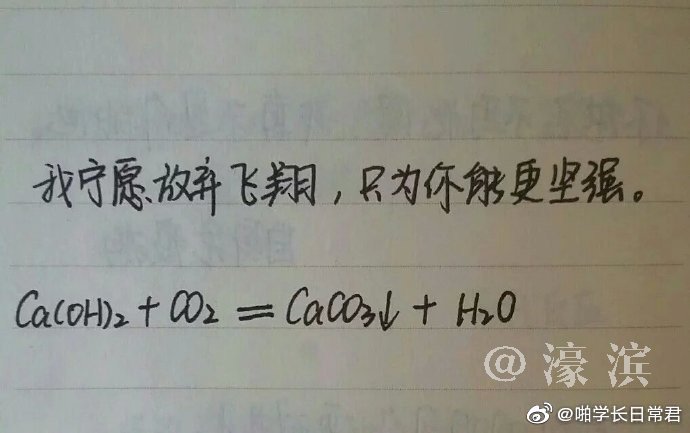 我宁愿放弃飞翔，只为你能更坚强。
Ca(OH)₂ + CO₂ = CaCO₃↓ + H₂O
@濠滨
@啪学长日常君